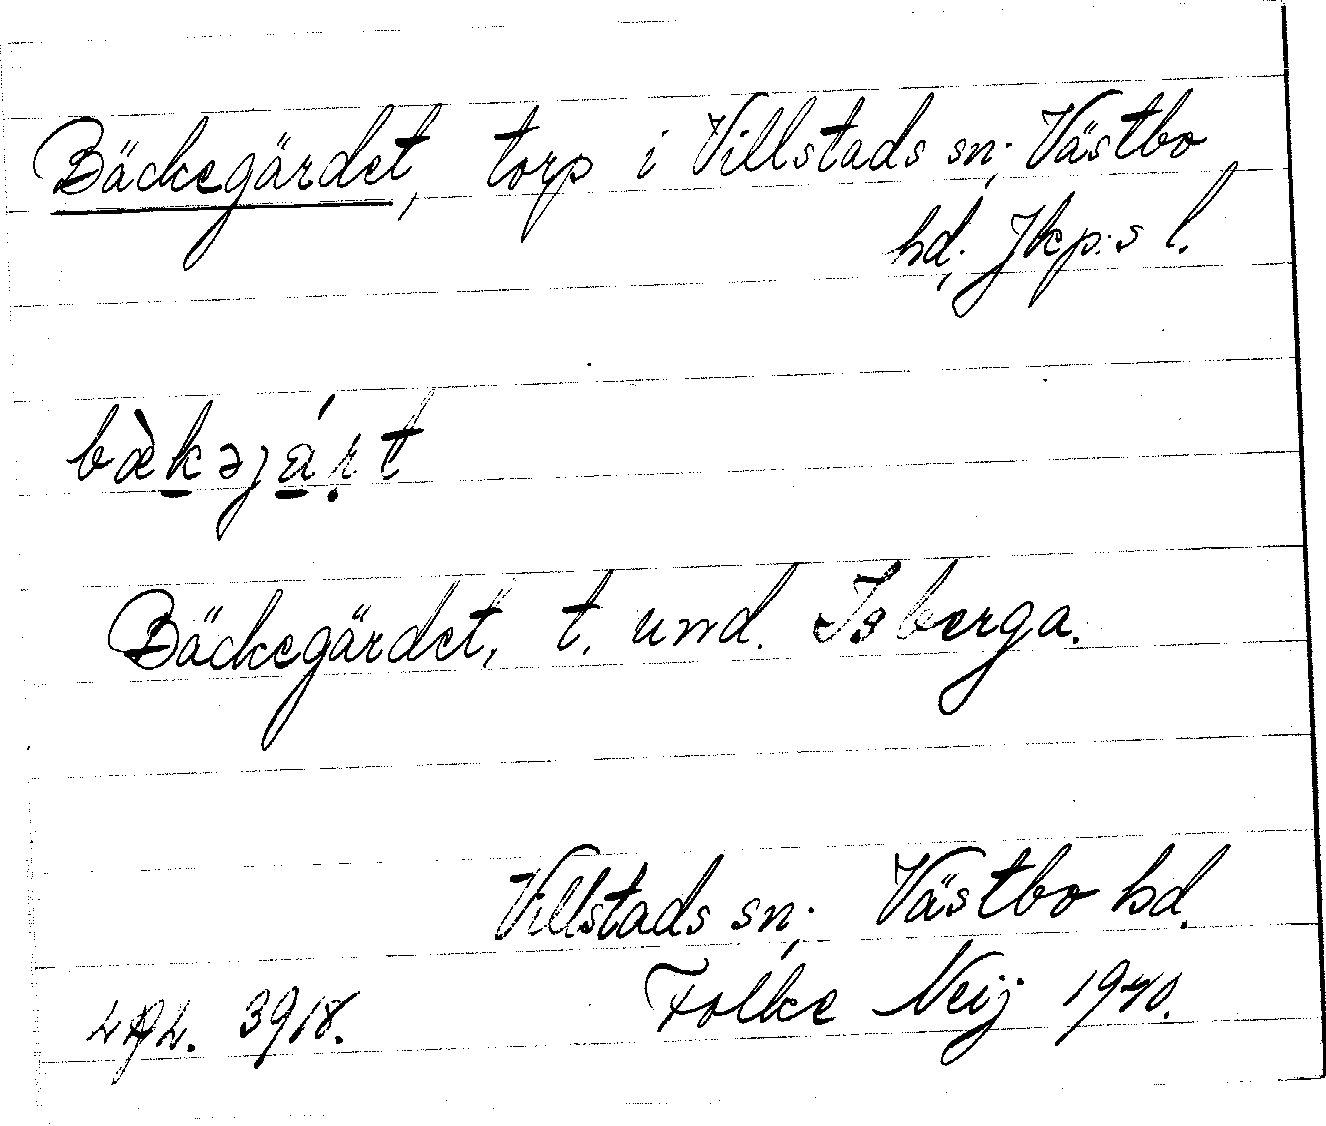 Bäckegärdet, torp i Villstads sn; Västbo
hd; Jkp:s l.
bæ̀kəjárt
Bäckegärdet, t. und. Isberga.
Villstads sn; Västbo hd.
Folke Neij 1940.
3918.